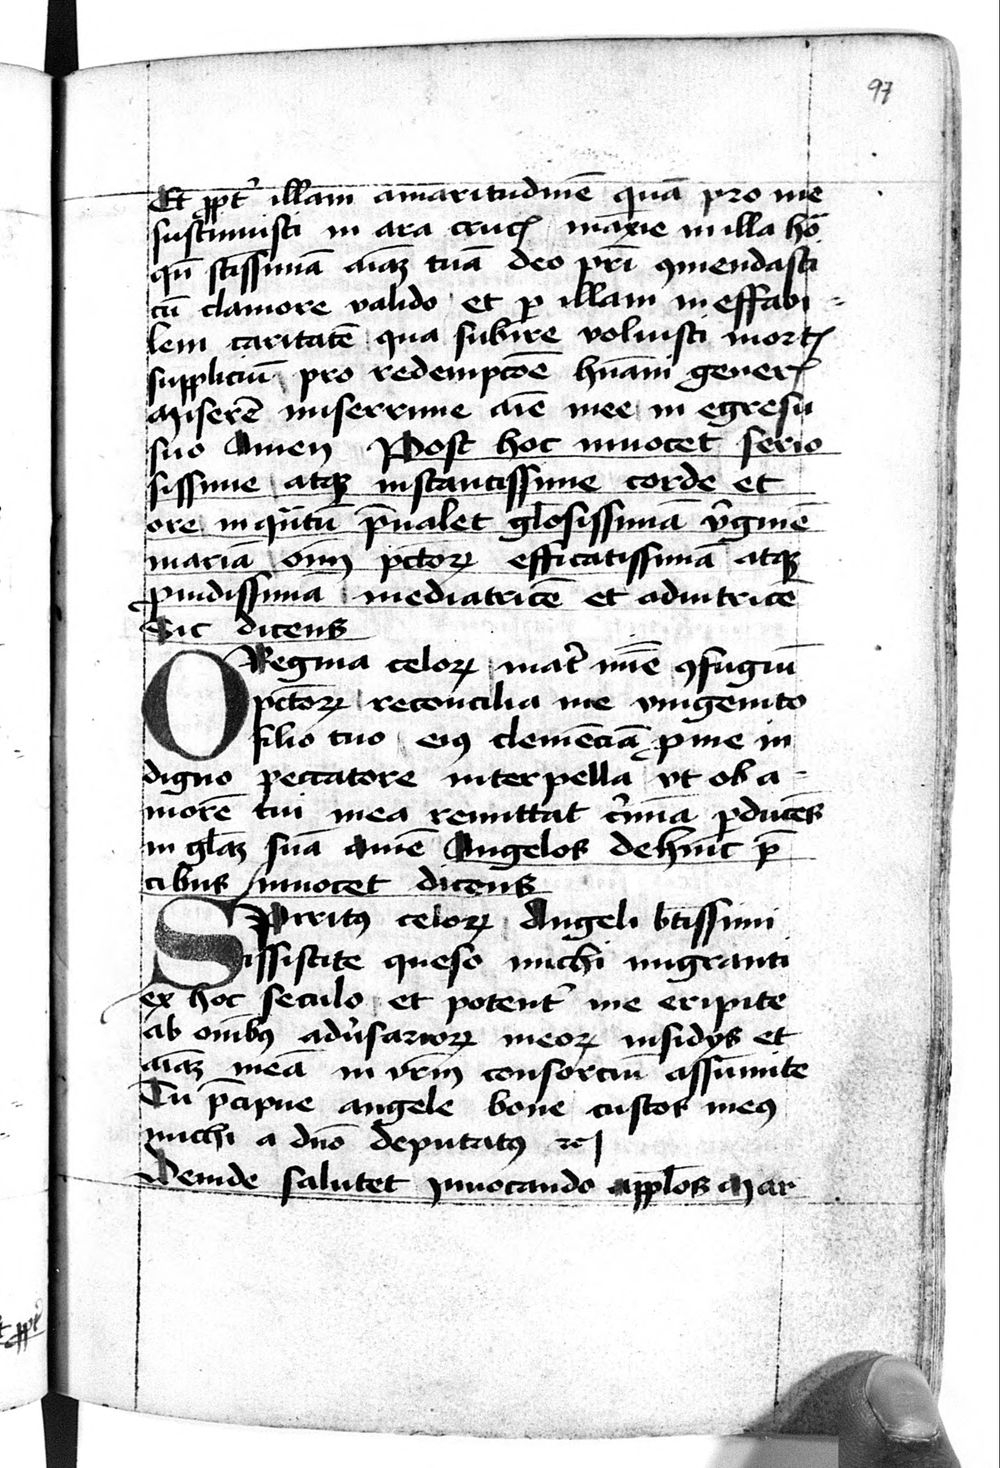 97
Et ꝓpt̾ illam amaritudinē quā pro me
sustinuisti in ara crucꝭ maxīe in illa hō
qn̄ sctīssimā aīaꝫ tuā deo pr̄i ꝯmendasti
cū clamore valido et ꝑ illam ineffabi-
lem caritatē qua subire voluisti mortꝭ
suppliciū pro redempcōe hūani generꝭ
Miserē miserrime aīe mee in egresu
suo Amen Post hoc inuocet serio
sissime atqꝫ instantissime corde et
ore inqn̄tū p̄ualet gl̄osissimā v̾ginē
mariā oīm pctōrꝝ efficatissimā atqꝫ
ꝓmdissimā mediatricē et adiutricē
Sic dicens
O Regina celorꝝ mat̾ mīe ꝯfugiū
pctōrꝝ reconcilia me vnigenito
filio tuo eiꝰ clemēciā ꝑ me in
digno peccatore interpella vt ob a-
morē tui mea remittat c̾mīa ꝑducēs
in gl̄aꝫ suā amē Angelos dehinc p̄
cibus inuocet dicens
Spiritꝰ celorꝝ Angeli btīssimi
assistite queso michi migranti
ex hoc seculo et potent̾ me eripite
ab oīnibꝰ adu̾sariorꝝ meorꝝ insidijs et
aīaꝫ meā in vr̄m consorciū assūmite
Tu p̄cipue angele bone custos meꝰ
michi a dn̄o deputatꝰ ⁊c
Deinde salutet Inuocando appl̄os Mar